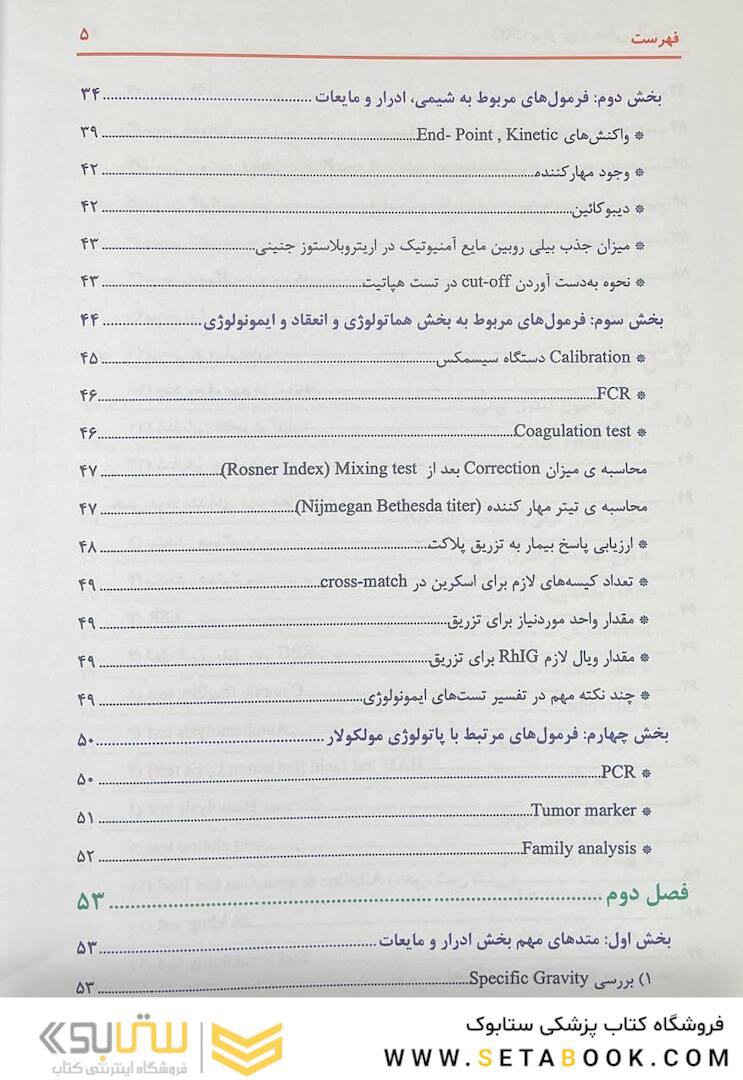 فهرست ۵
بخش دوم: فرمول‌های مربوط به شیمی، ادرار و مایعات ۳۴
* واکنش‌های End- Point , Kinetic ۳۹
* وجود مهارکننده ۴۲
* دیبوکائین ۴۲
* میزان جذب بیلی روبین مایع آمنیوتیک در اریتروبلاستوز جنینی ۴۳
* نحوه به‌دست آوردن cut-off در تست هپاتیت ۴۳
بخش سوم: فرمول‌های مربوط به بخش هماتولوژی و انعقاد و ایمونولوژی ۴۴
* Calibration دستگاه سیسمکس ۴۵
* FCR ۴۶
* Coagulation test ۴۶
محاسبه ی میزان Correction بعد از Mixing test (Rosner Index) ۴۷
محاسبه ی تیتر مهار کننده (Nijmegan Bethesda titer) ۴۷
* ارزیابی پاسخ بیمار به تزریق پلاکت ۴۸
* تعداد کیسه‌های لازم برای اسکرین در cross-match ۴۹
* مقدار واحد موردنیاز برای تزریق ۴۹
* مقدار ویال لازم RhIG برای تزریق ۴۹
* چند نکته مهم در تفسیر تست‌های ایمونولوژی ۴۹
بخش چهارم: فرمول‌های مرتبط با پاتولوژی مولکولار ۵۰
* PCR ۵۰
* Tumor marker ۵۱
* Family analysis ۵۲
فصل دوم ۵۳
بخش اول: متدهای مهم بخش ادرار و مایعات ۵۳
۱) بررسی Specific Gravity ۵۳
فروشگاه کتاب پزشکی ستابوک
WWW.SETABOOK.COM
ستابوک
فروشگاه اینترنتی کتاب